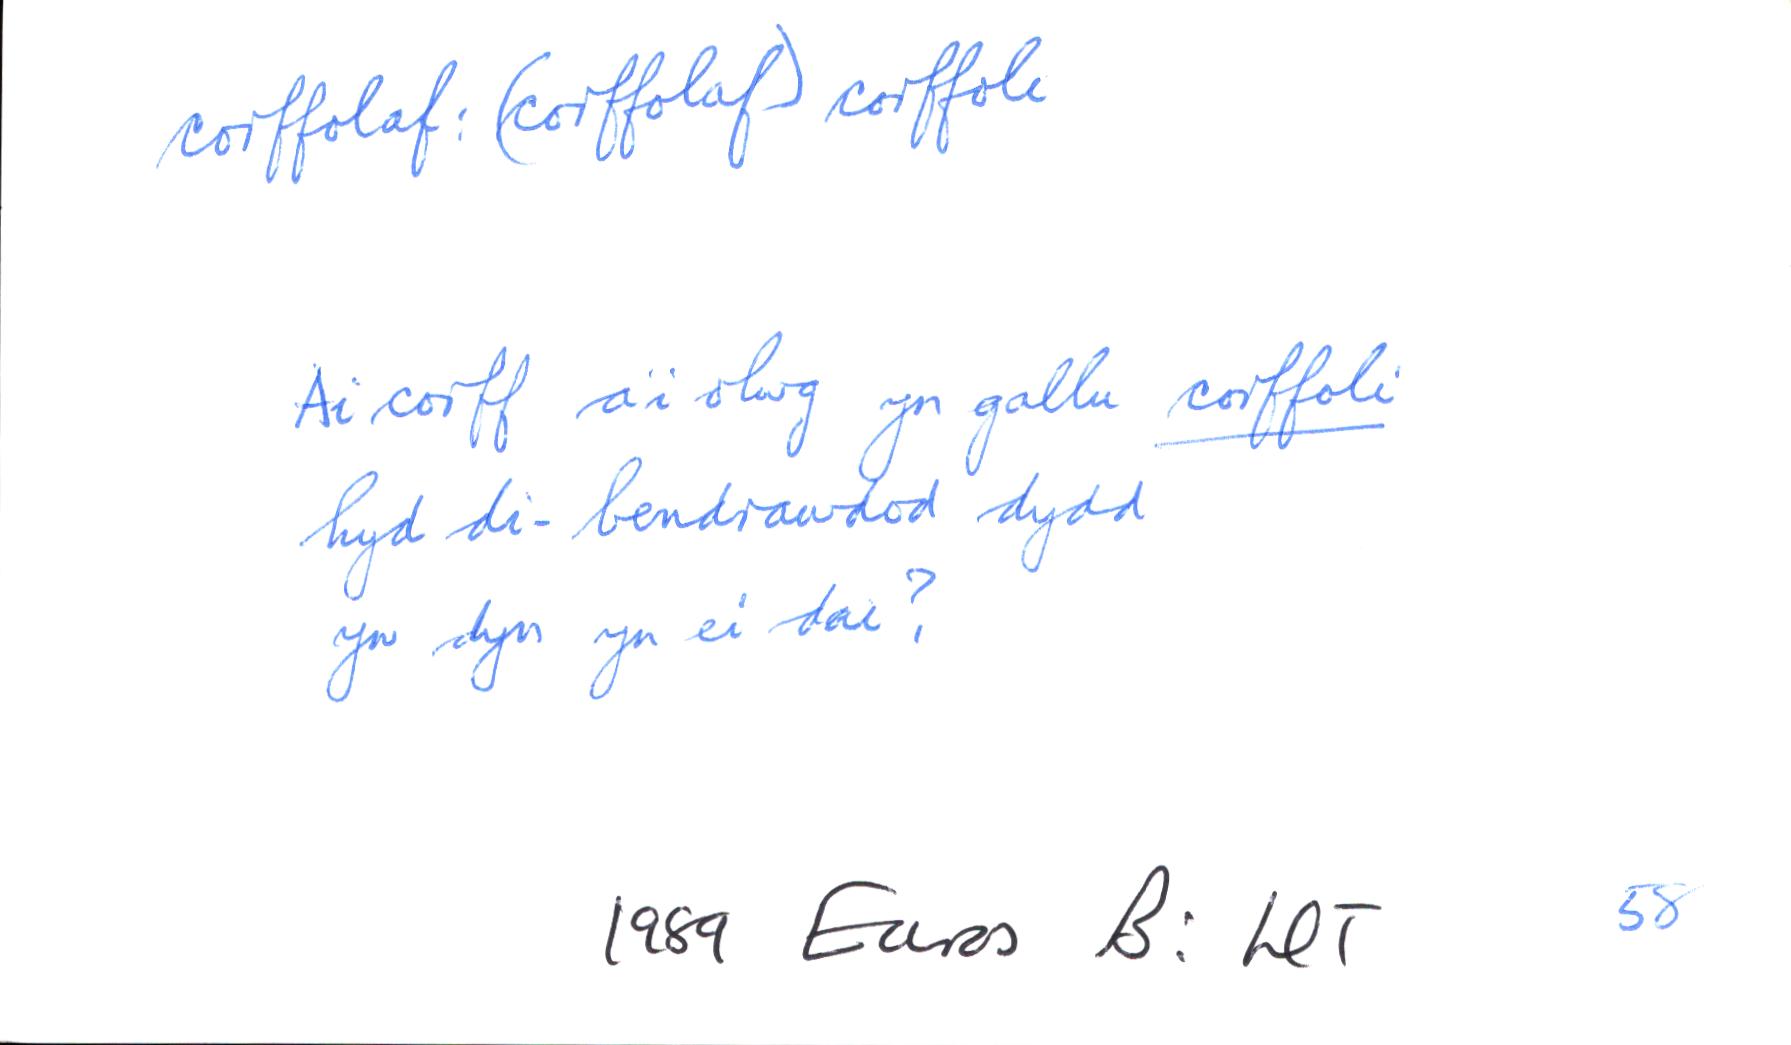 corffolaf: (corffolaf) corffoli
Ai corff a'i olwg yn gallu corffoli
hyd di-bendrawdod dydd
yw dyn yn ei dai?
1989 Euros B: LlT 58